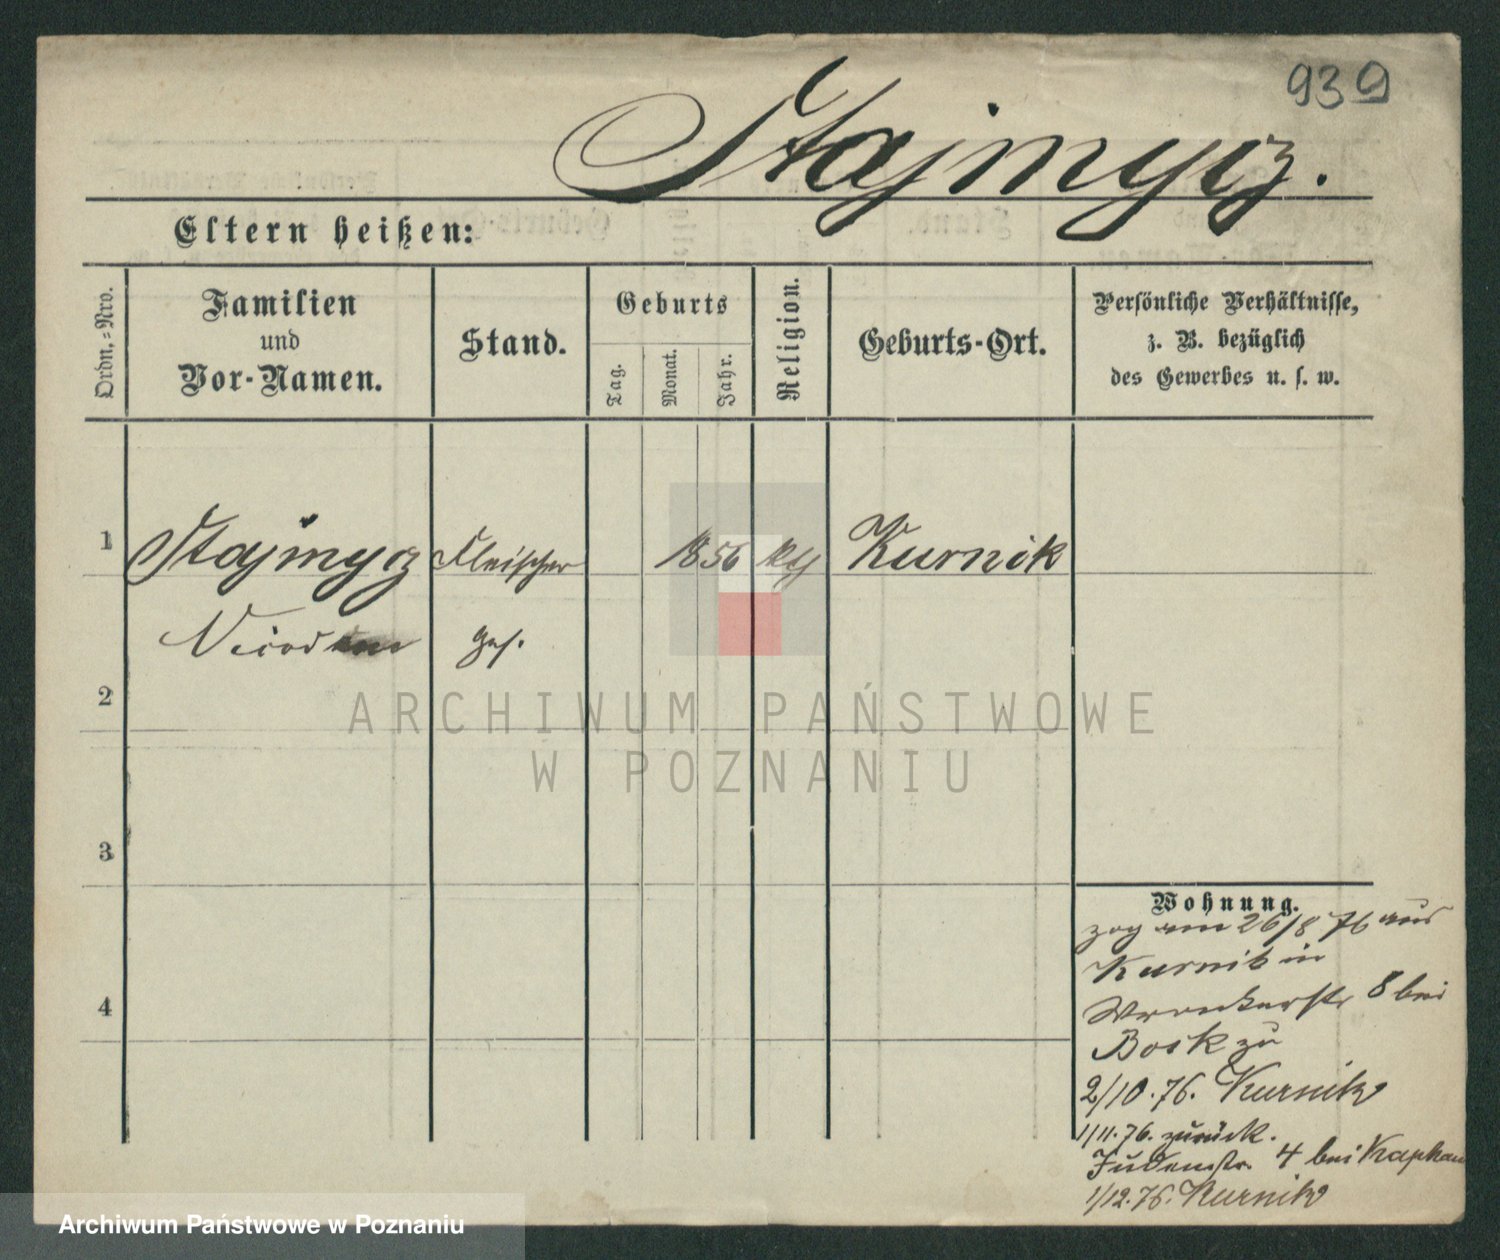 939
Stajmycz.
Eltern heißen:
Ordn.=Nro.
Familien
und
Vor-Namen.
Stand.
Geburts
Tag.
Monat.
Jahr.
Religion.
Geburts-Ort.
Persönliche Verhältnisse,
z. B. bezüglich
des Gewerbes u. s. w.
1 Stajmycz Fleischer 1856 kth Kurnik
ges.
2
3
4
Wohnung.
zog am 26/8 76 aus
Kurnik in
Wronkerstr 8 bei
Bock zu
2/10.76. Kurnik
1/11.76. zurück.
Judenstr. 4 bei
1/12.76. Kurnik
ARCHIWUM PAŃSTWOWE
W POZNANIU
Archiwum Państwowe w Poznaniu